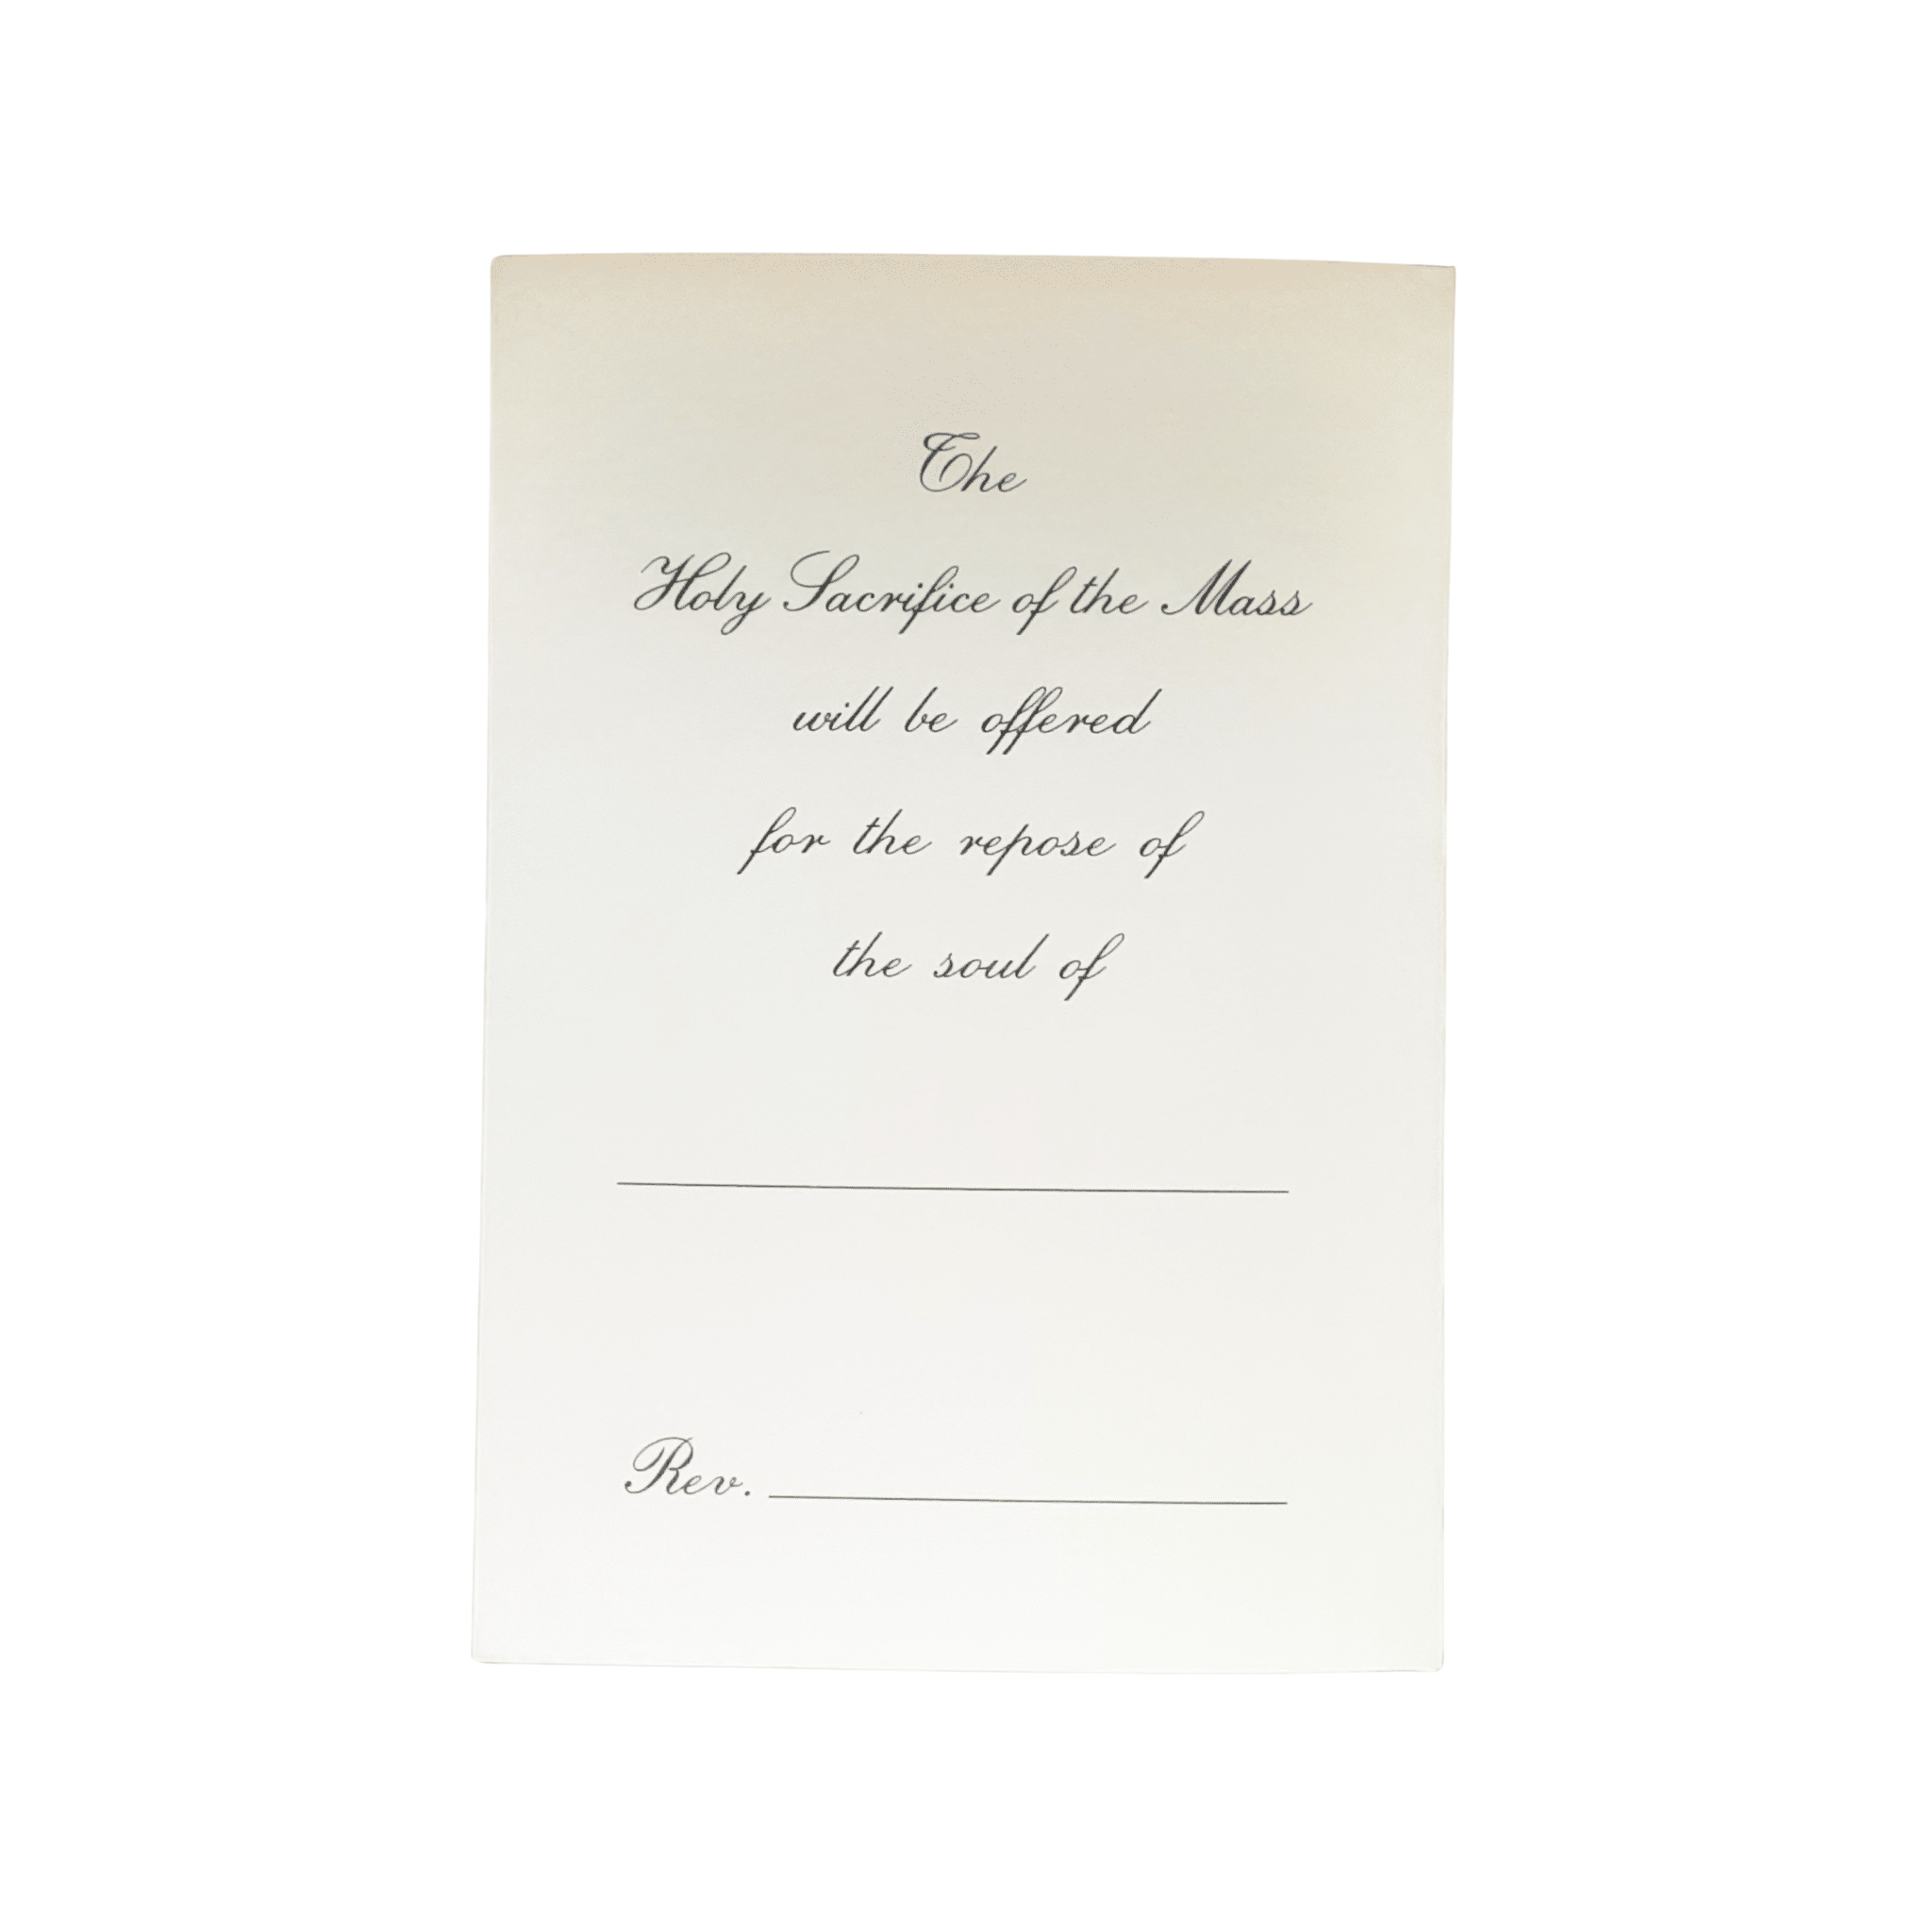 The
Holy Sacrifice of the Mass
will be offered
for the repose of
the soul of
Rev.